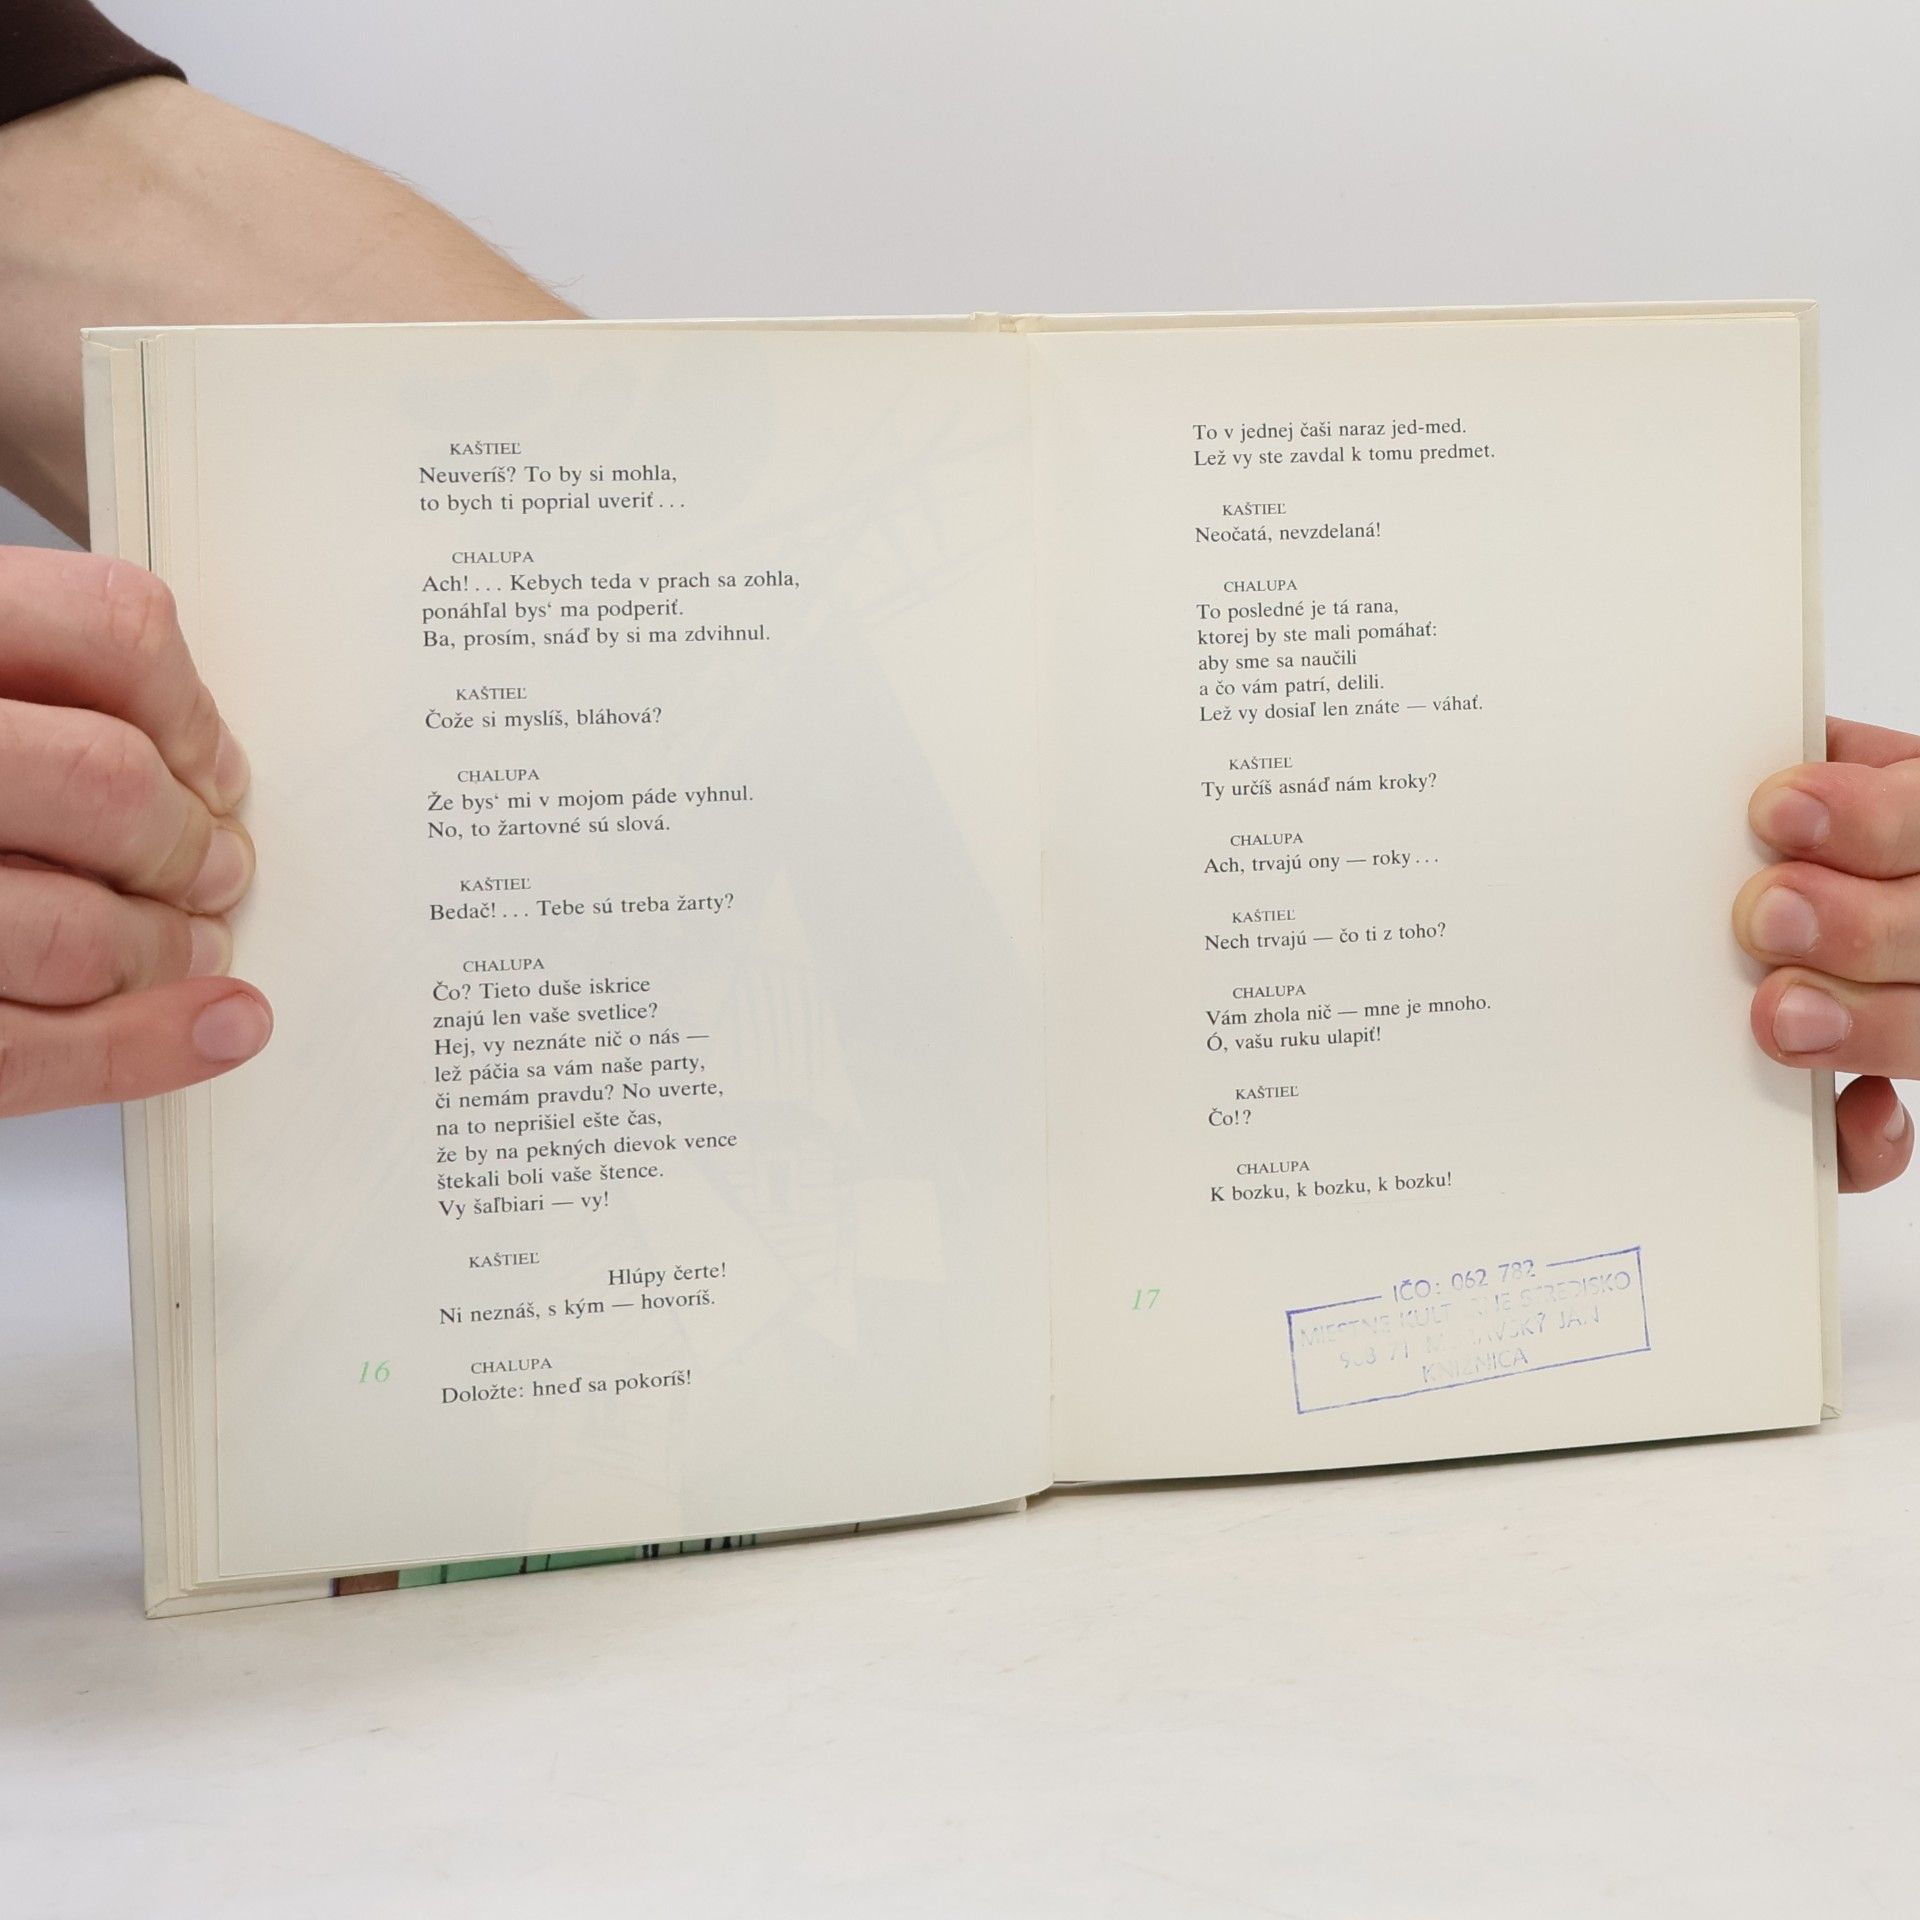 KAŠTIEĽ
Neuveríš? To by si mohla,
to bych ti poprial uveriť . . .
CHALUPA
Ach! . . . Kebych teda v prach sa zohla,
ponáhľal bys‘ ma podperiť.
Ba, prosím, snáď by si ma zdvihnul.
KAŠTIEĽ
Čože si myslíš, bláhová?
CHALUPA
Že bys‘ mi v mojom páde vyhnul.
No, to žartovné sú slová.
KAŠTIEĽ
Bedač! . . . Tebe sú treba žarty?
CHALUPA
Čo? Tieto duše iskrice
znajú len vaše svetlice?
Hej, vy neznáte nič o nás —
lež páčia sa vám naše party,
či nemám pravdu? No uverte,
na to neprišiel ešte čas,
že by na pekných dievok vence
štekali boli vaše štence.
Vy šaľbiari — vy!
KAŠTIEĽ
Hlúpy čerte!
Ni neznáš, s kým — hovoríš.
CHALUPA
Doložte: hneď sa pokoríš!
16
To v jednej čaši naraz jed-med.
Lež vy ste zavdal k tomu predmet.
KAŠTIEĽ
Neočatá, nevzdelaná!
CHALUPA
To posledné je tá rana,
ktorej by ste mali pomáhať:
aby sme sa naučili
a čo vám patrí, delili.
Lež vy dosiaľ len znáte — váhať.
KAŠTIEĽ
Ty určíš asnáď nám kroky?
CHALUPA
Ach, trvajú ony — roky . . .
KAŠTIEĽ
Nech trvajú — čo ti z toho?
CHALUPA
Vám zhola nič — mne je mnoho.
Ó, vašu ruku ulapiť!
KAŠTIEĽ
Čo!?
CHALUPA
K bozku, k bozku, k bozku!
17
IČO: 062 782
MIESTNE STREDISKO
71 JÁN
KNIŽNICA